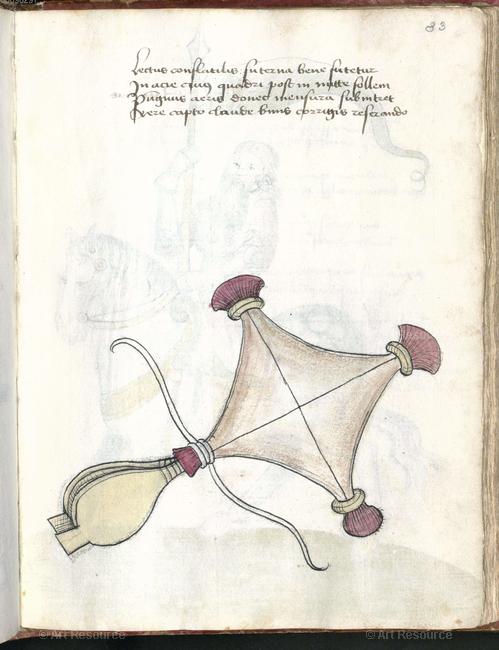 83
Lectus conflatilis suterna bene sutetur
In acie cuius quadri post in mitte follem
Pugnus aeris donec mensura subintret
Aere capto claude binis corrigis reserando
© Art Resource
© Art Resource